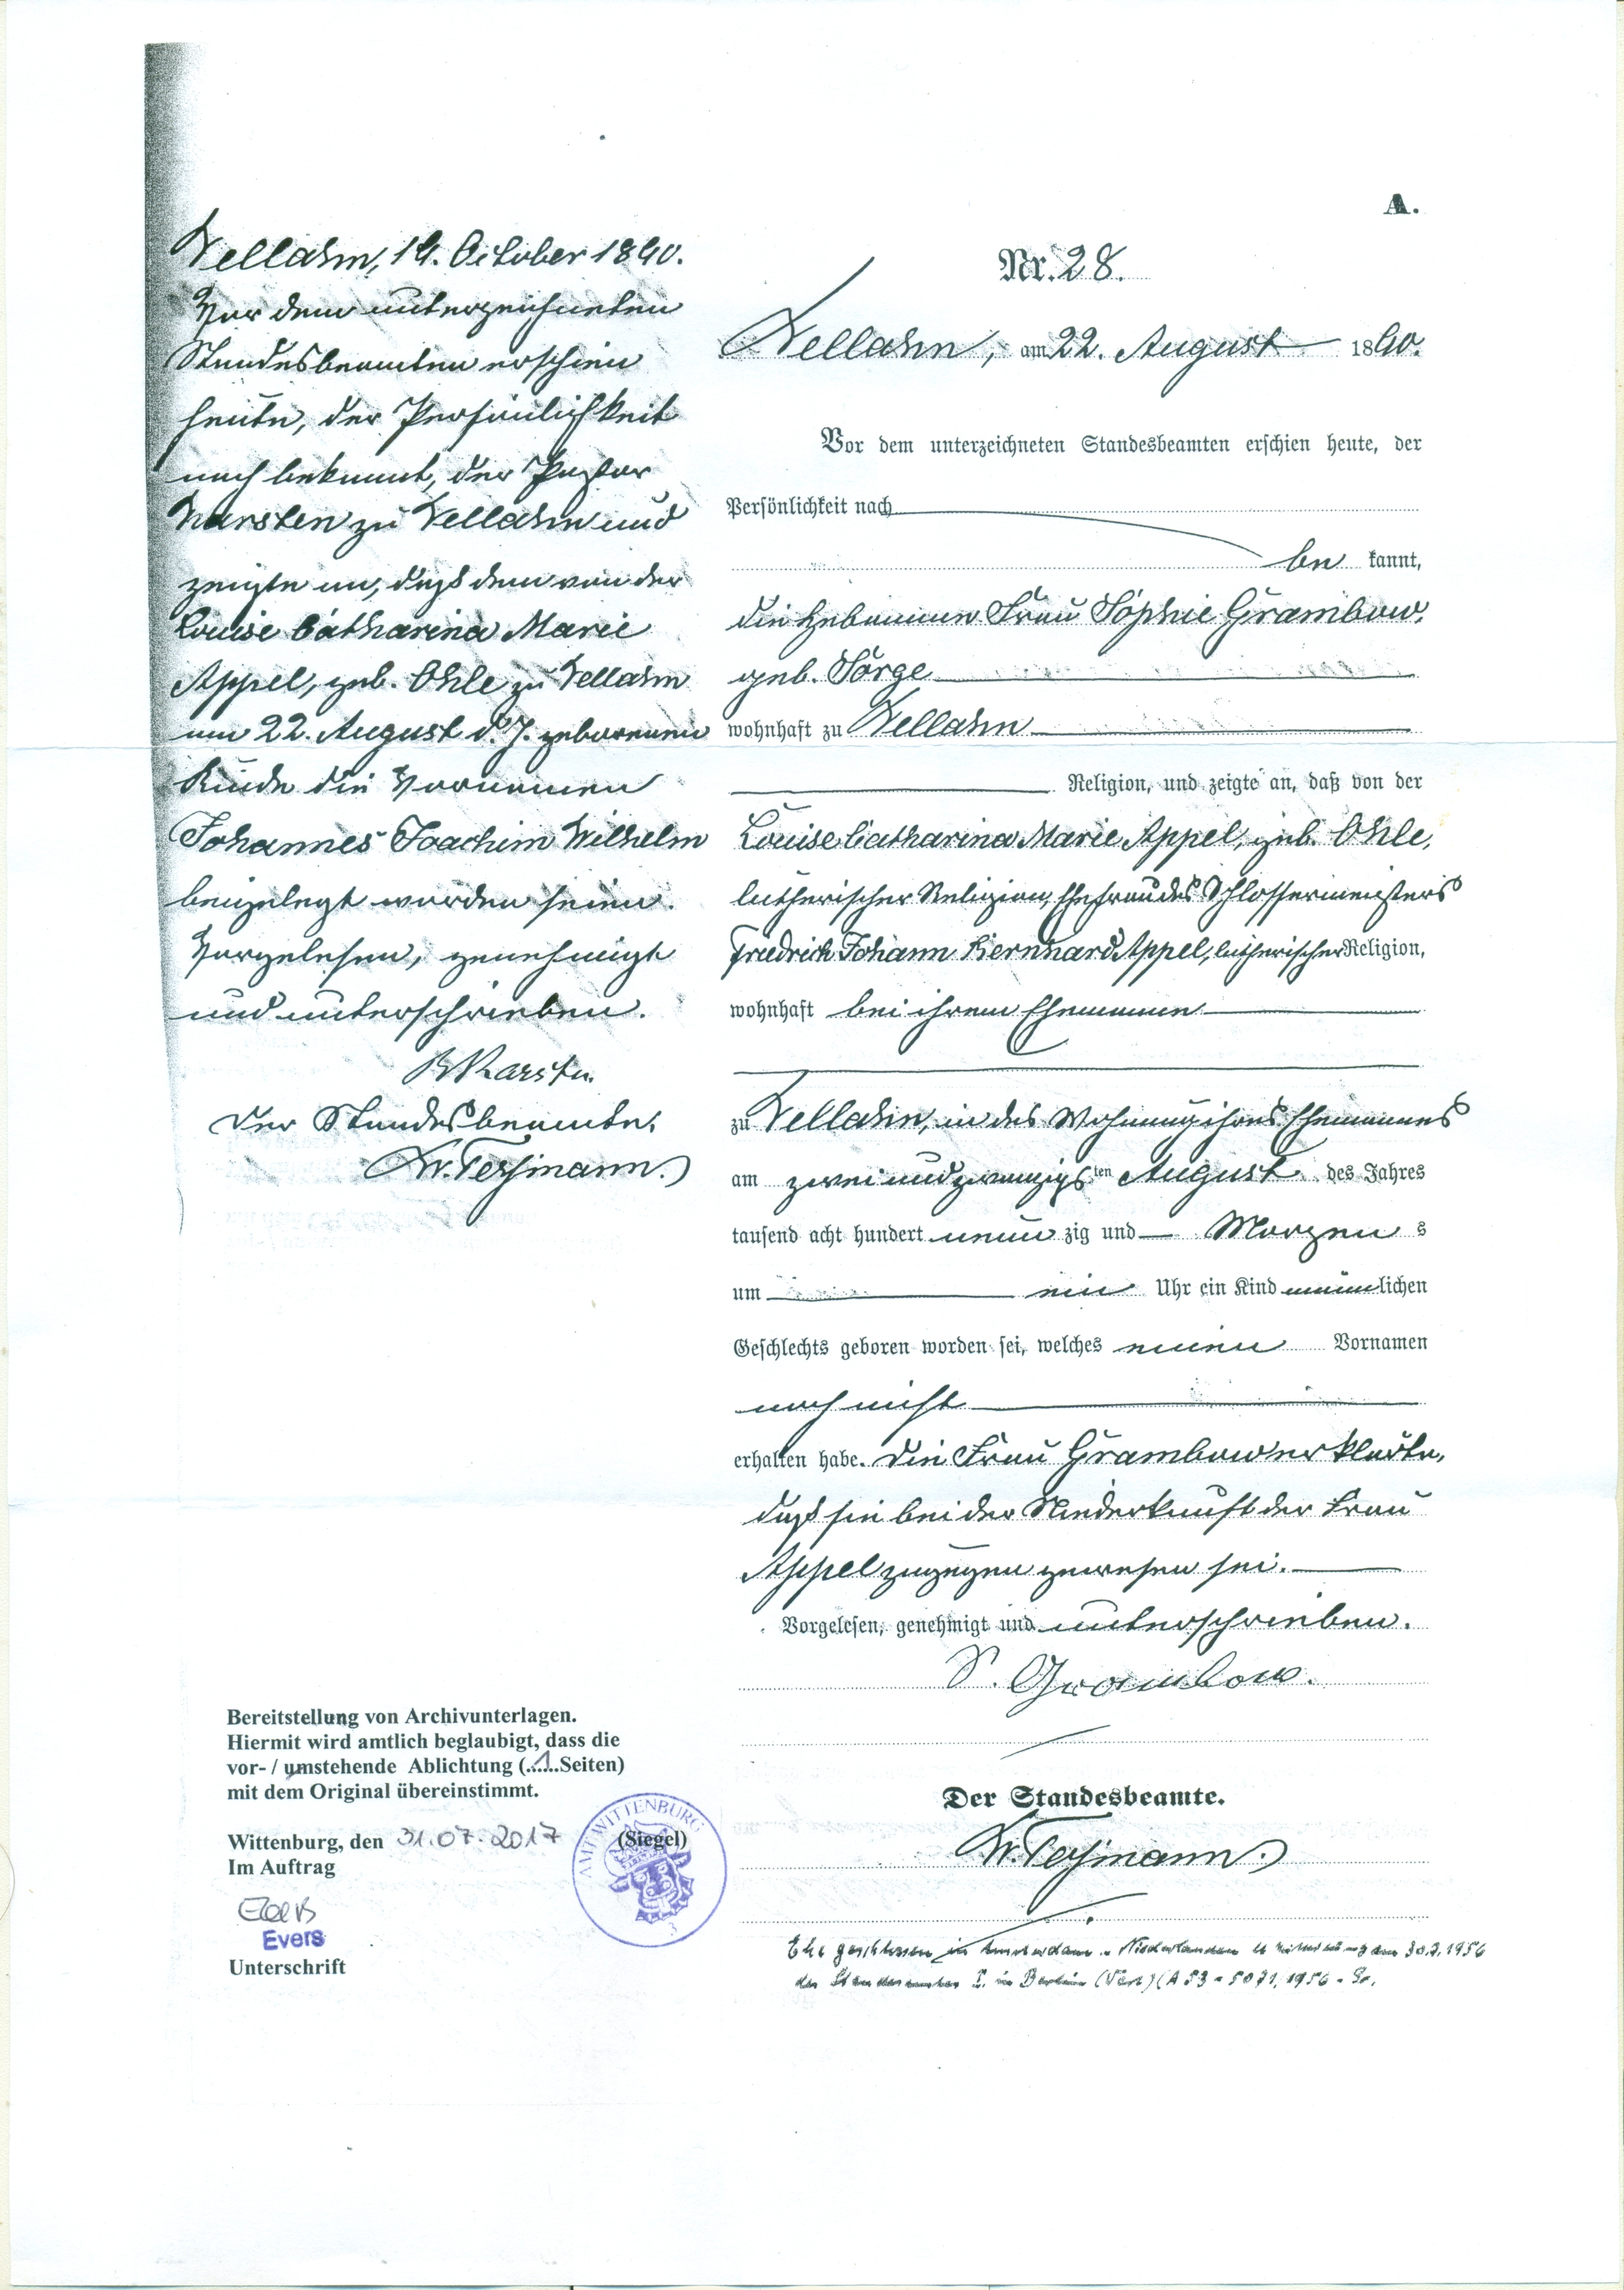 A.
Nr. 28.
Vellahn, am 22. August 1890.
Vor dem unterzeichneten Standesbeamten erschien heute, der
Persönlichkeit nach
be kannt,
die Hebamme Frau Sophie Grambow,
geb. Sörge
wohnhaft zu Vellahn
Religion, und zeigte an, daß von der
Louise Catharina Marie Appel, geb. Ohle,
lutherischer Religion, Ehefrau des Schlossermeisters
Friedrich Johann Bernhard Appel, lutherischer Religion,
wohnhaft bei ihrem Ehemanne
zu Vellahn, in des Wohnung ihres Ehemannes
am zwei und zwanzigsten August des Jahres
tausend acht hundert neun zig und — Morgen s
um ein Uhr ein Kind männlichen
Geschlechts geboren worden sei, welches einen Vornamen
noch nicht
erhalten habe. Die Frau Grambow erklärte,
daß sie bei der Niederkunft der Frau
Appel zugegen gewesen sei.
Vorgelesen, genehmigt und unterschrieben.
S. Grambow.
Der Standesbeamte.
Ehe geschlossen in Amsterdam - Niederlanden 30.7.1956
des Standesamtes I. in Berlin (West) (A 53 - 5071, 1956 - Gr.
Vellahn, 14. October 1890.
Vor dem unterzeichneten
Standesbeamten erschien
heute, der Persönlichkeit
nach bekannt, der Pastor
Karsten zu Vellahn und
zeigte an, daß dem von der
Louise Catharina Marie
Appel, geb. Ohle zu Vellahn
am 22. August d. J. geborenen
Kinde die Vornamen
Johannes Joachim Wilhelm
beigelegt worden seien.
Vorgelesen, genehmigt
und unterschrieben.
Karsten
Der Standesbeamte.
Bereitstellung von Archivunterlagen.
Hiermit wird amtlich beglaubigt, dass die
vor- / umstehende Ablichtung (..1..Seiten)
mit dem Original übereinstimmt.
Wittenburg, den 31.07.2017 (Siegel)
Im Auftrag
Evers
Evers
Unterschrift
AMT WITTENBURG
3